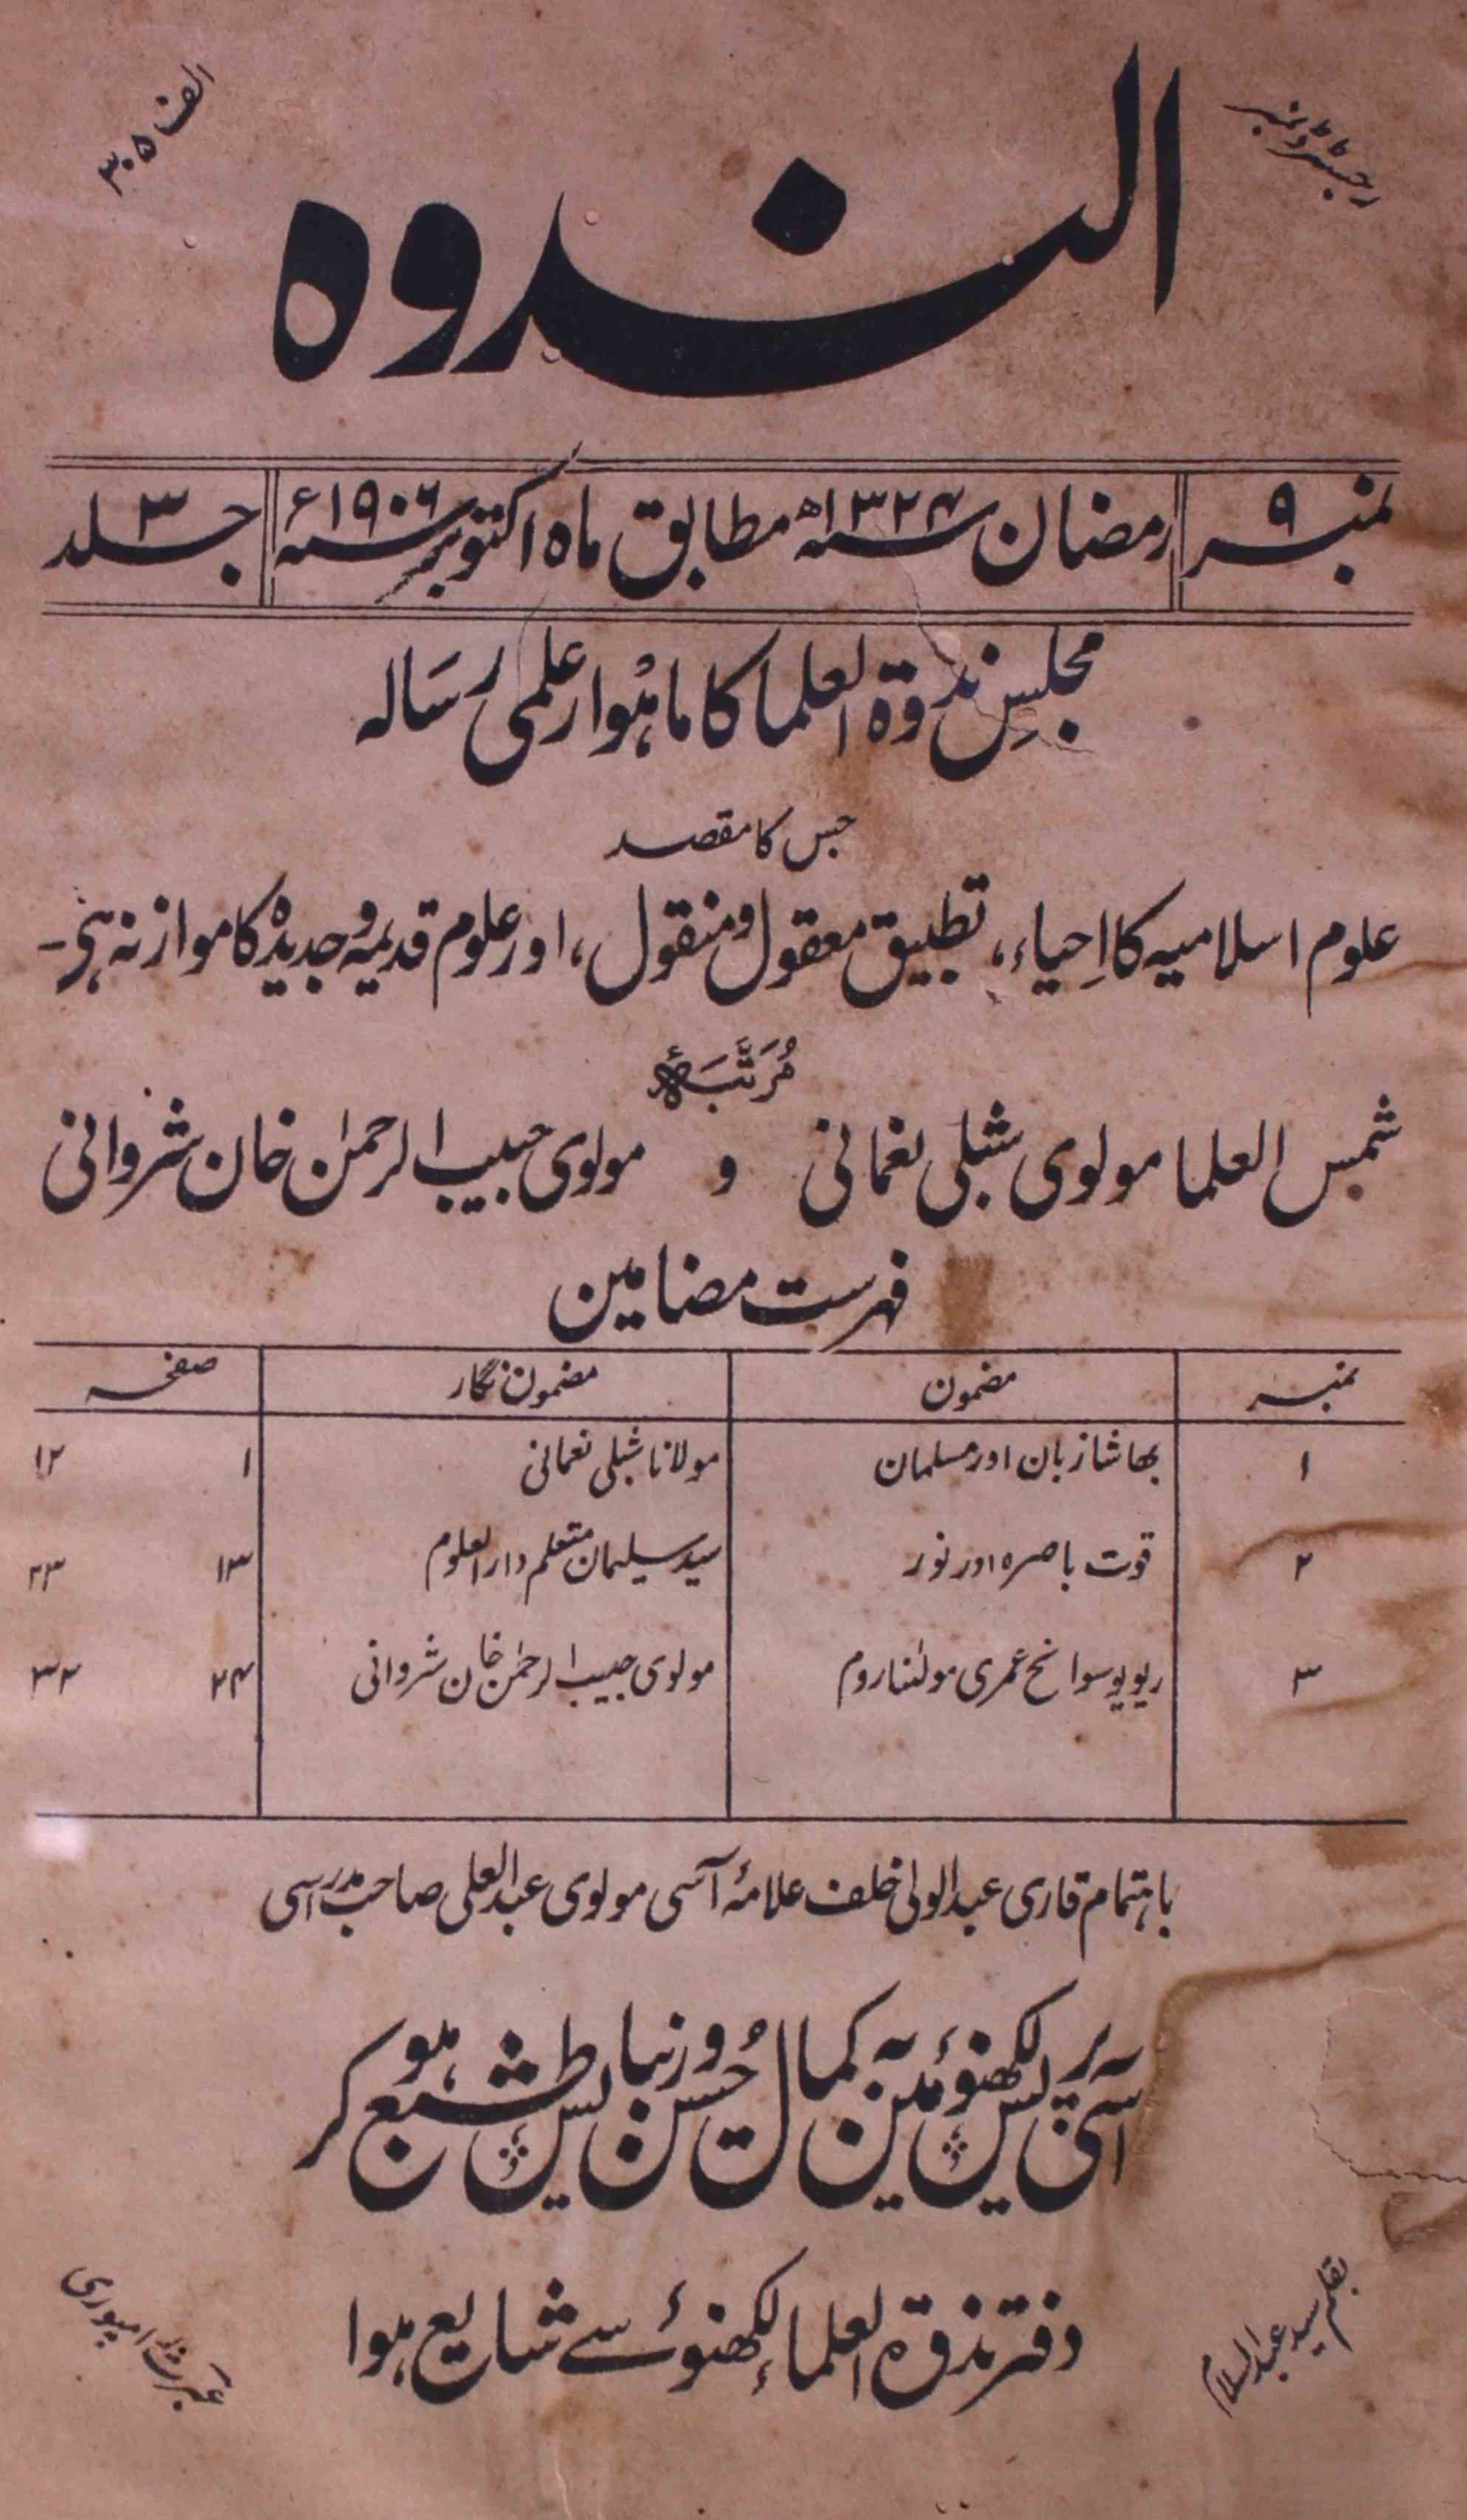 رجسٹرڈ نمبر
الف ۳۰۵
الندوہ
نمبر ۹ رمضان سنہ ۱۳۲۴ھ مطابق ماہ اکتوبر سنہ ۱۹۰۶ء جلد ۳
مجلسِ ندوۃ العلما کا ماہوار علمی رسالہ
جس کا مقصد
علوم اسلامیہ کا اِحیاء، تطبیق معقول و منقول، اور علوم قدیمہ و جدیدہ کا موازنہ ہی۔
مُرَتَّبَۂ
شمس العلما مولوی شبلی نعمانی و مولوی حبیب الرحمٰن خان شروانی
فہرست مضامین
نمبر مضمون مضمون نگار صفحہ
۱ بھاشا زبان اور مسلمان مولانا شبلی نعمانی ۱ ۱۲
۲ قوت باصرہ اور نور سید سلیمان متعلم دارالعلوم ۱۳ ۲۳
۳ ریویو سوانح عمری مولٰنا روم مولوی حبیب الرحمٰن خان شروانی ۲۴ ۳۲
باہتمام قاری عبدالولی خلف علامۂ آسی مولوی عبدالعلی صاحب مدراسی
آسی پریس لکھنؤ مین بہ کمال حُسن و زیبایش طبع ہو کر
دفتر ندوۃ العلماء لکھنؤ سے شایع ہوا
بقلم سید عبدالسلام
عبرت رامپوری